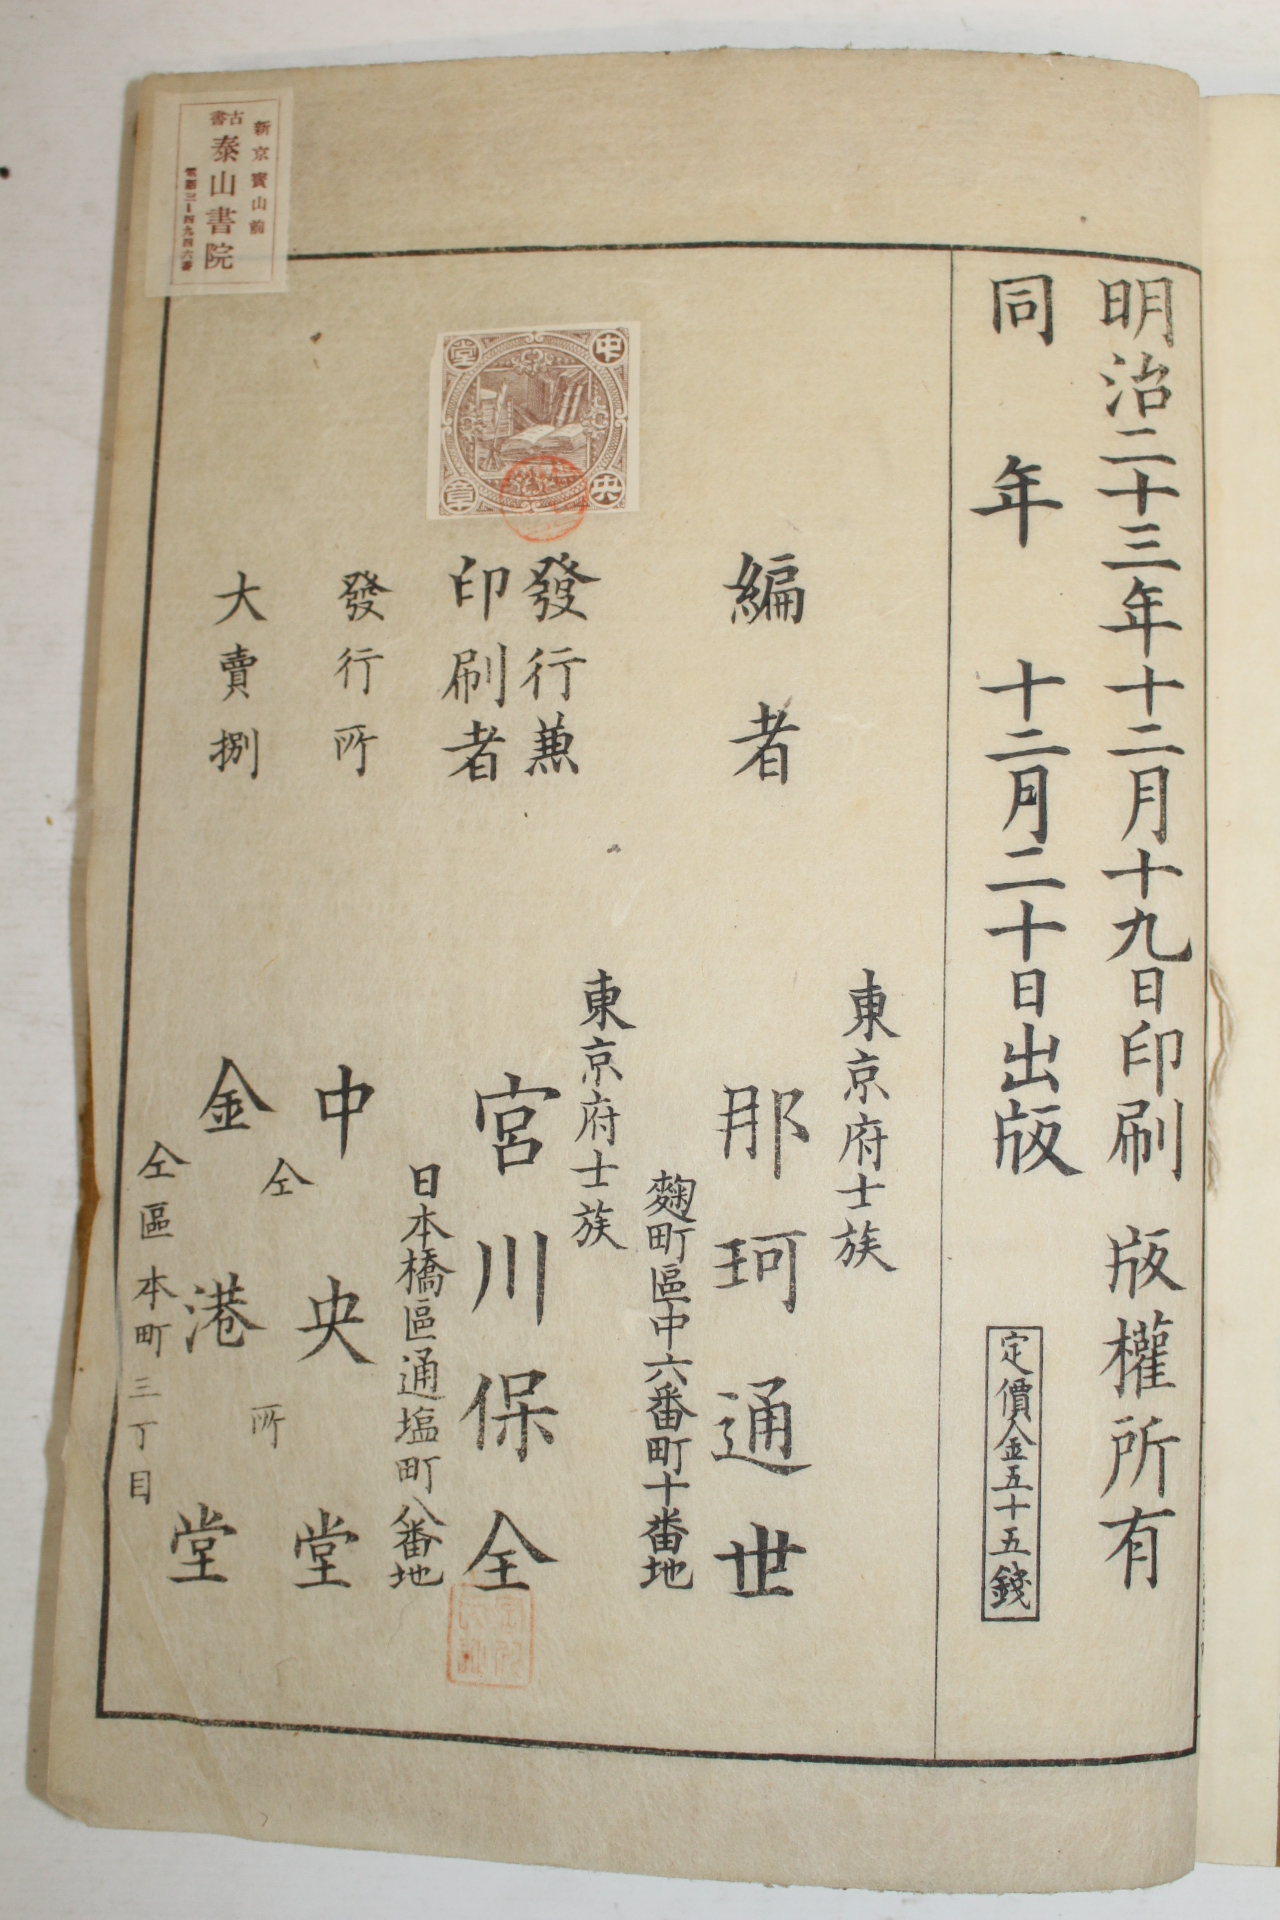 明治二十三年十二月十九日印刷 版權所有
同年十二月二十日出版
定價金五十五錢
東京府士族
編者 那珂通世
麴町區中六番町十番地
東京府士族
發行兼
印刷者 宮川保全
日本橋區通塩町八番地
發行所 中央堂
仝所
大賣捌 金港堂
仝區本町三丁目
中央堂章
新京寳山前
古書 泰山書院
電話三―四九四六番